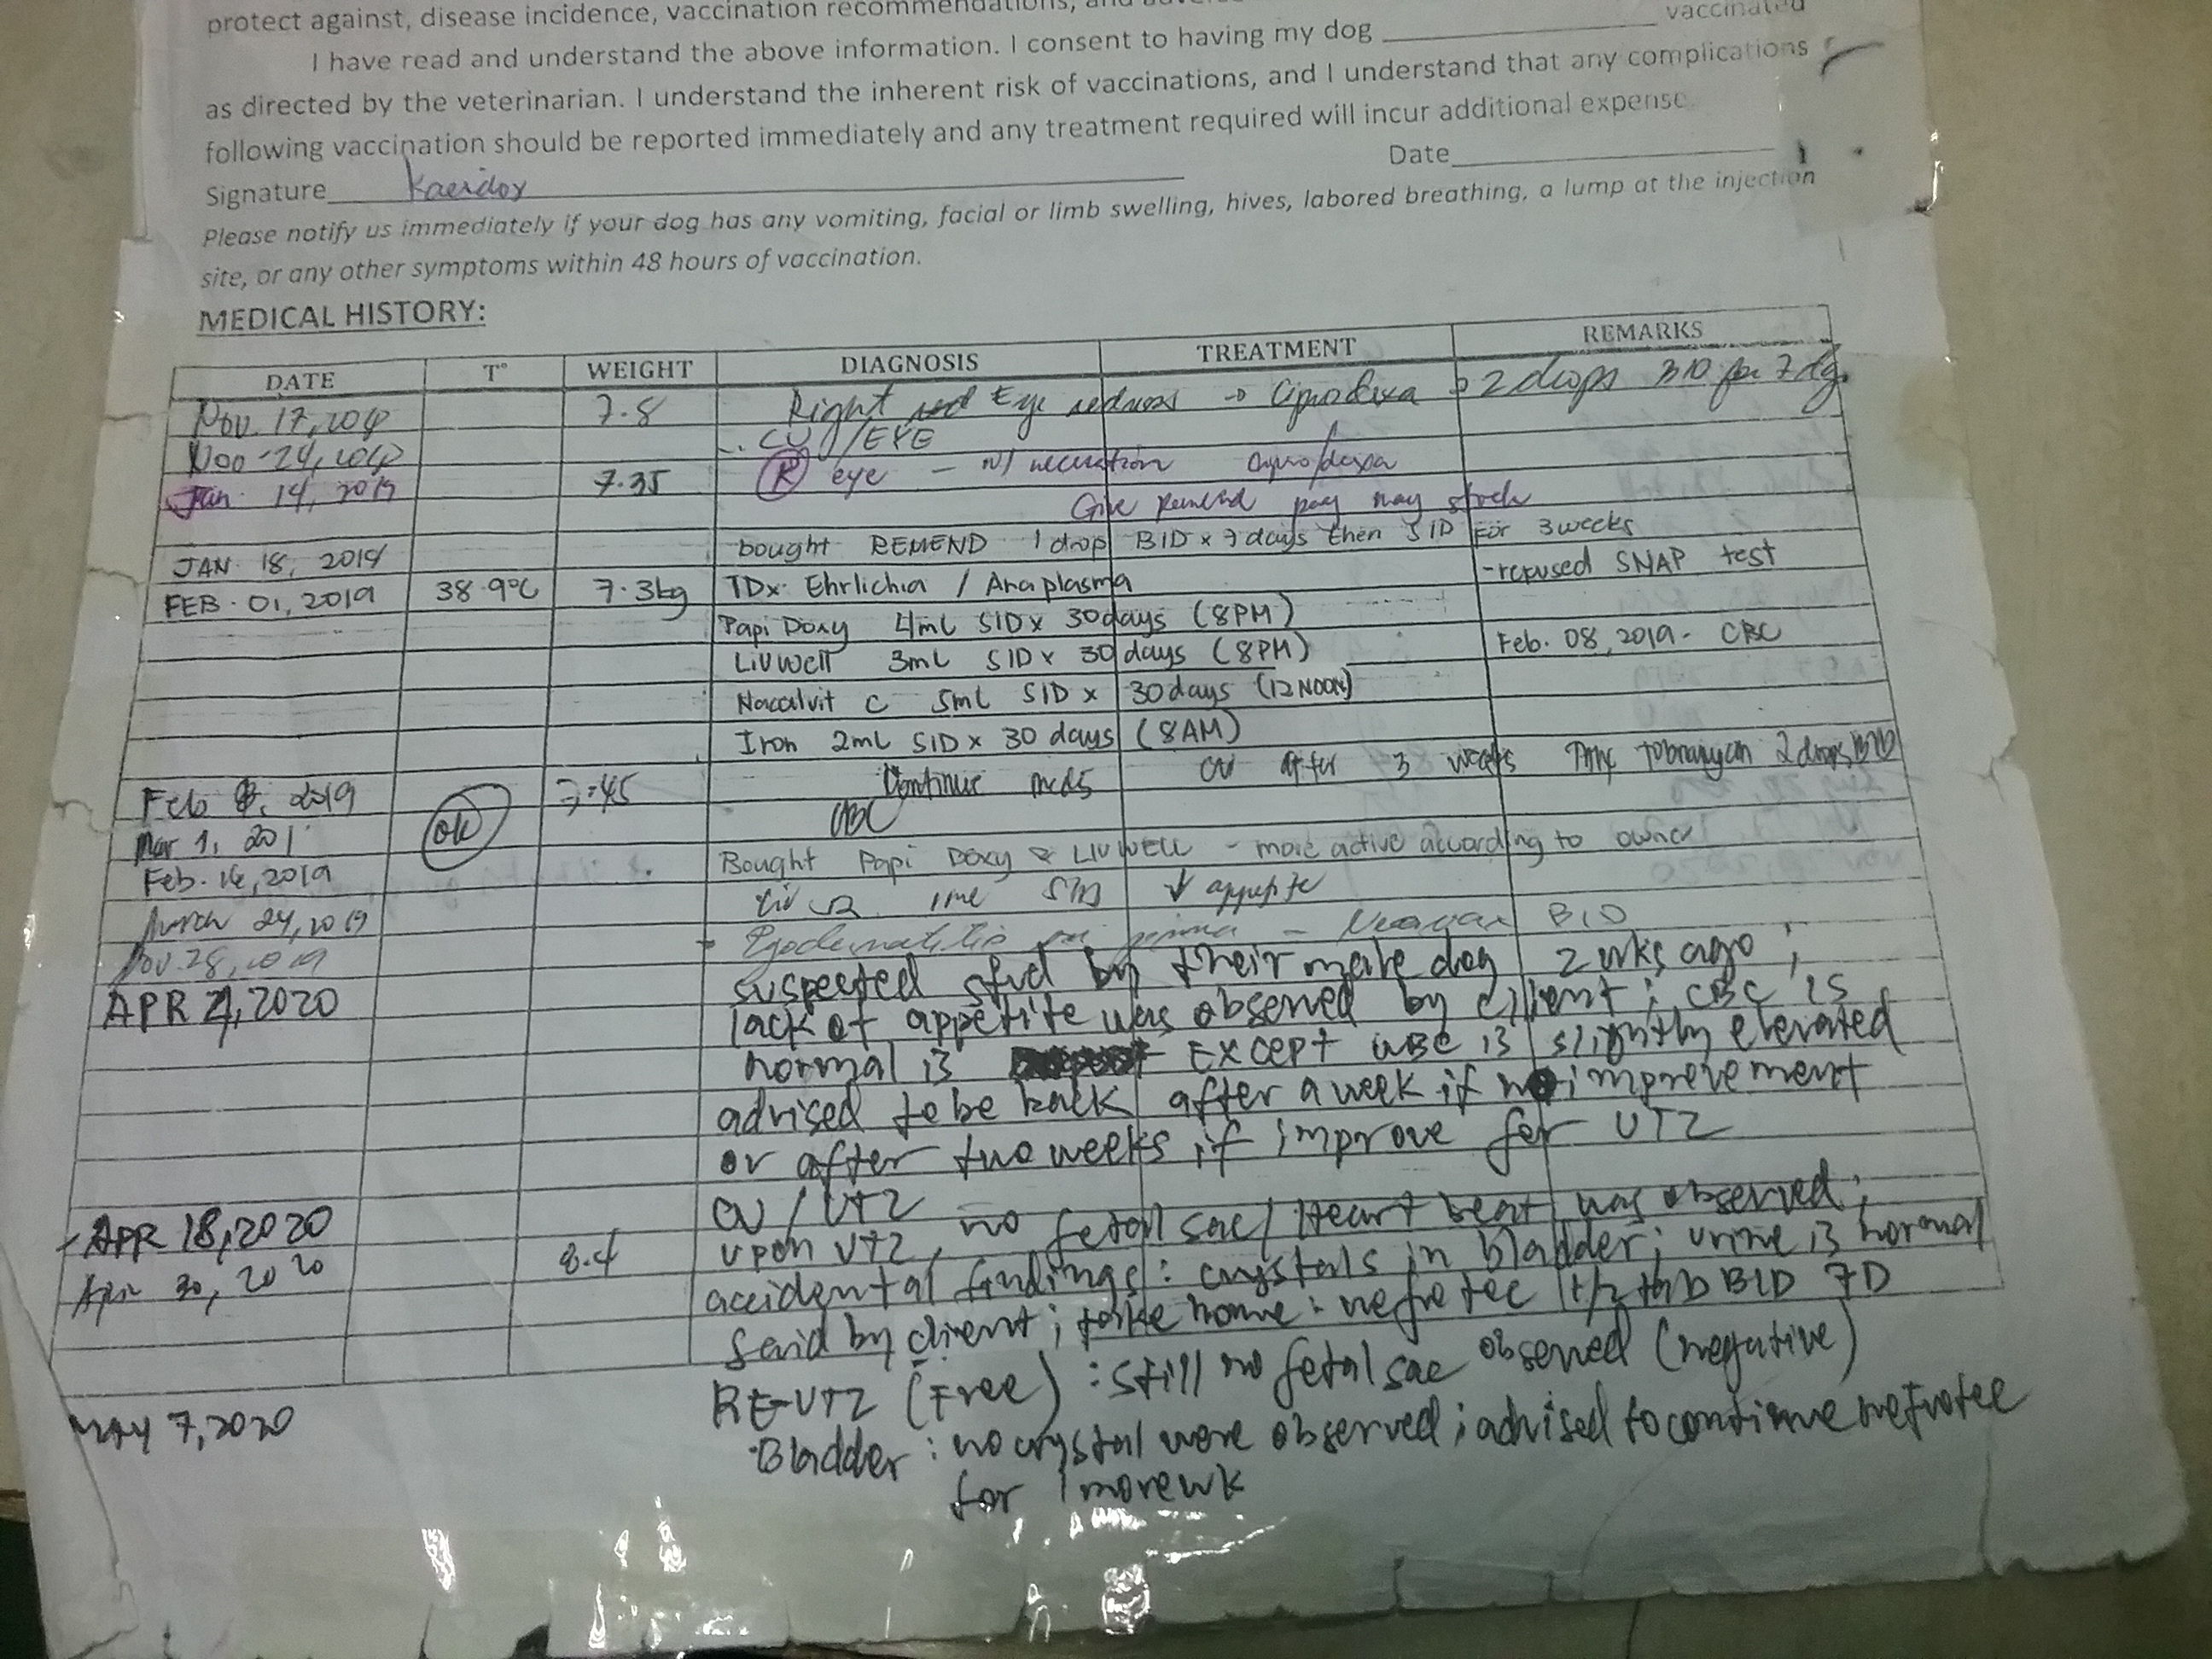 protect against, disease incidence, vaccination recommendations, and
I have read and understand the above information. I consent to having my dog ____________ vaccinated
as directed by the veterinarian. I understand the inherent risk of vaccinations, and I understand that any complications
following vaccination should be reported immediately and any treatment required will incur additional expense.
Signature Date
Please notify us immediately if your dog has any vomiting, facial or limb swelling, hives, labored breathing, a lump at the injection
site, or any other symptoms within 48 hours of vaccination.
MEDICAL HISTORY:
DATE T° WEIGHT DIAGNOSIS TREATMENT REMARKS
Nov. 17, 7.8 Right Eye redness → 2 drops for 7
Nov 24, /EYE
Jan. 14, 2019 7.35 (R) eye -
Give Remend
JAN. 18, 2019 bought REMEND 1 drop BID x 7 days then SID For 3 weeks
FEB. 01, 2019 38.9°C 7.3kg TDx: Ehrlichia / Anaplasma -refused SNAP test
Papi Doxy 4mL SID x 30 days (8PM)
Livwell 3mL SID x 30 days (8PM) Feb. 08, 2019 - CBC
Nacalvit C 5mL SID x 30 days (12 NOON)
Iron 2mL SID x 30 days (8AM)
Feb 8, 2019 7.45 Continue meds after 3 weeks 2 drops
Mar 1, 201 OK CBC
Feb. 16, 2019 Bought Papi Doxy & LIVWELL - more active according to owner
March 24, 2019 ↓ appetite
Nov. 28, 2019 BID
APR 2020 suspected stud by their male dog 2 wks ago;
lack of appetite was observed by client; CBC is
normal is EXCEPT WBC is slightly elevated
advised to be back after a week if no improvement
or after two weeks if improve for UTZ
APR 18, 2020 CU / UTZ
Apr 30, 2020 8.4 upon UTZ, no fetal sac/ Heart beat was observed;
accidental findings: crystals in bladder; urine is normal
said by client; take home: nefrotec 1 1/2 tab BID 7D
MAY 7, 2020 RE-UTZ (Free): still no fetal sac observed (negative)
Bladder: no crystal were observed; advised to continue nefrotec
for 1 more wk